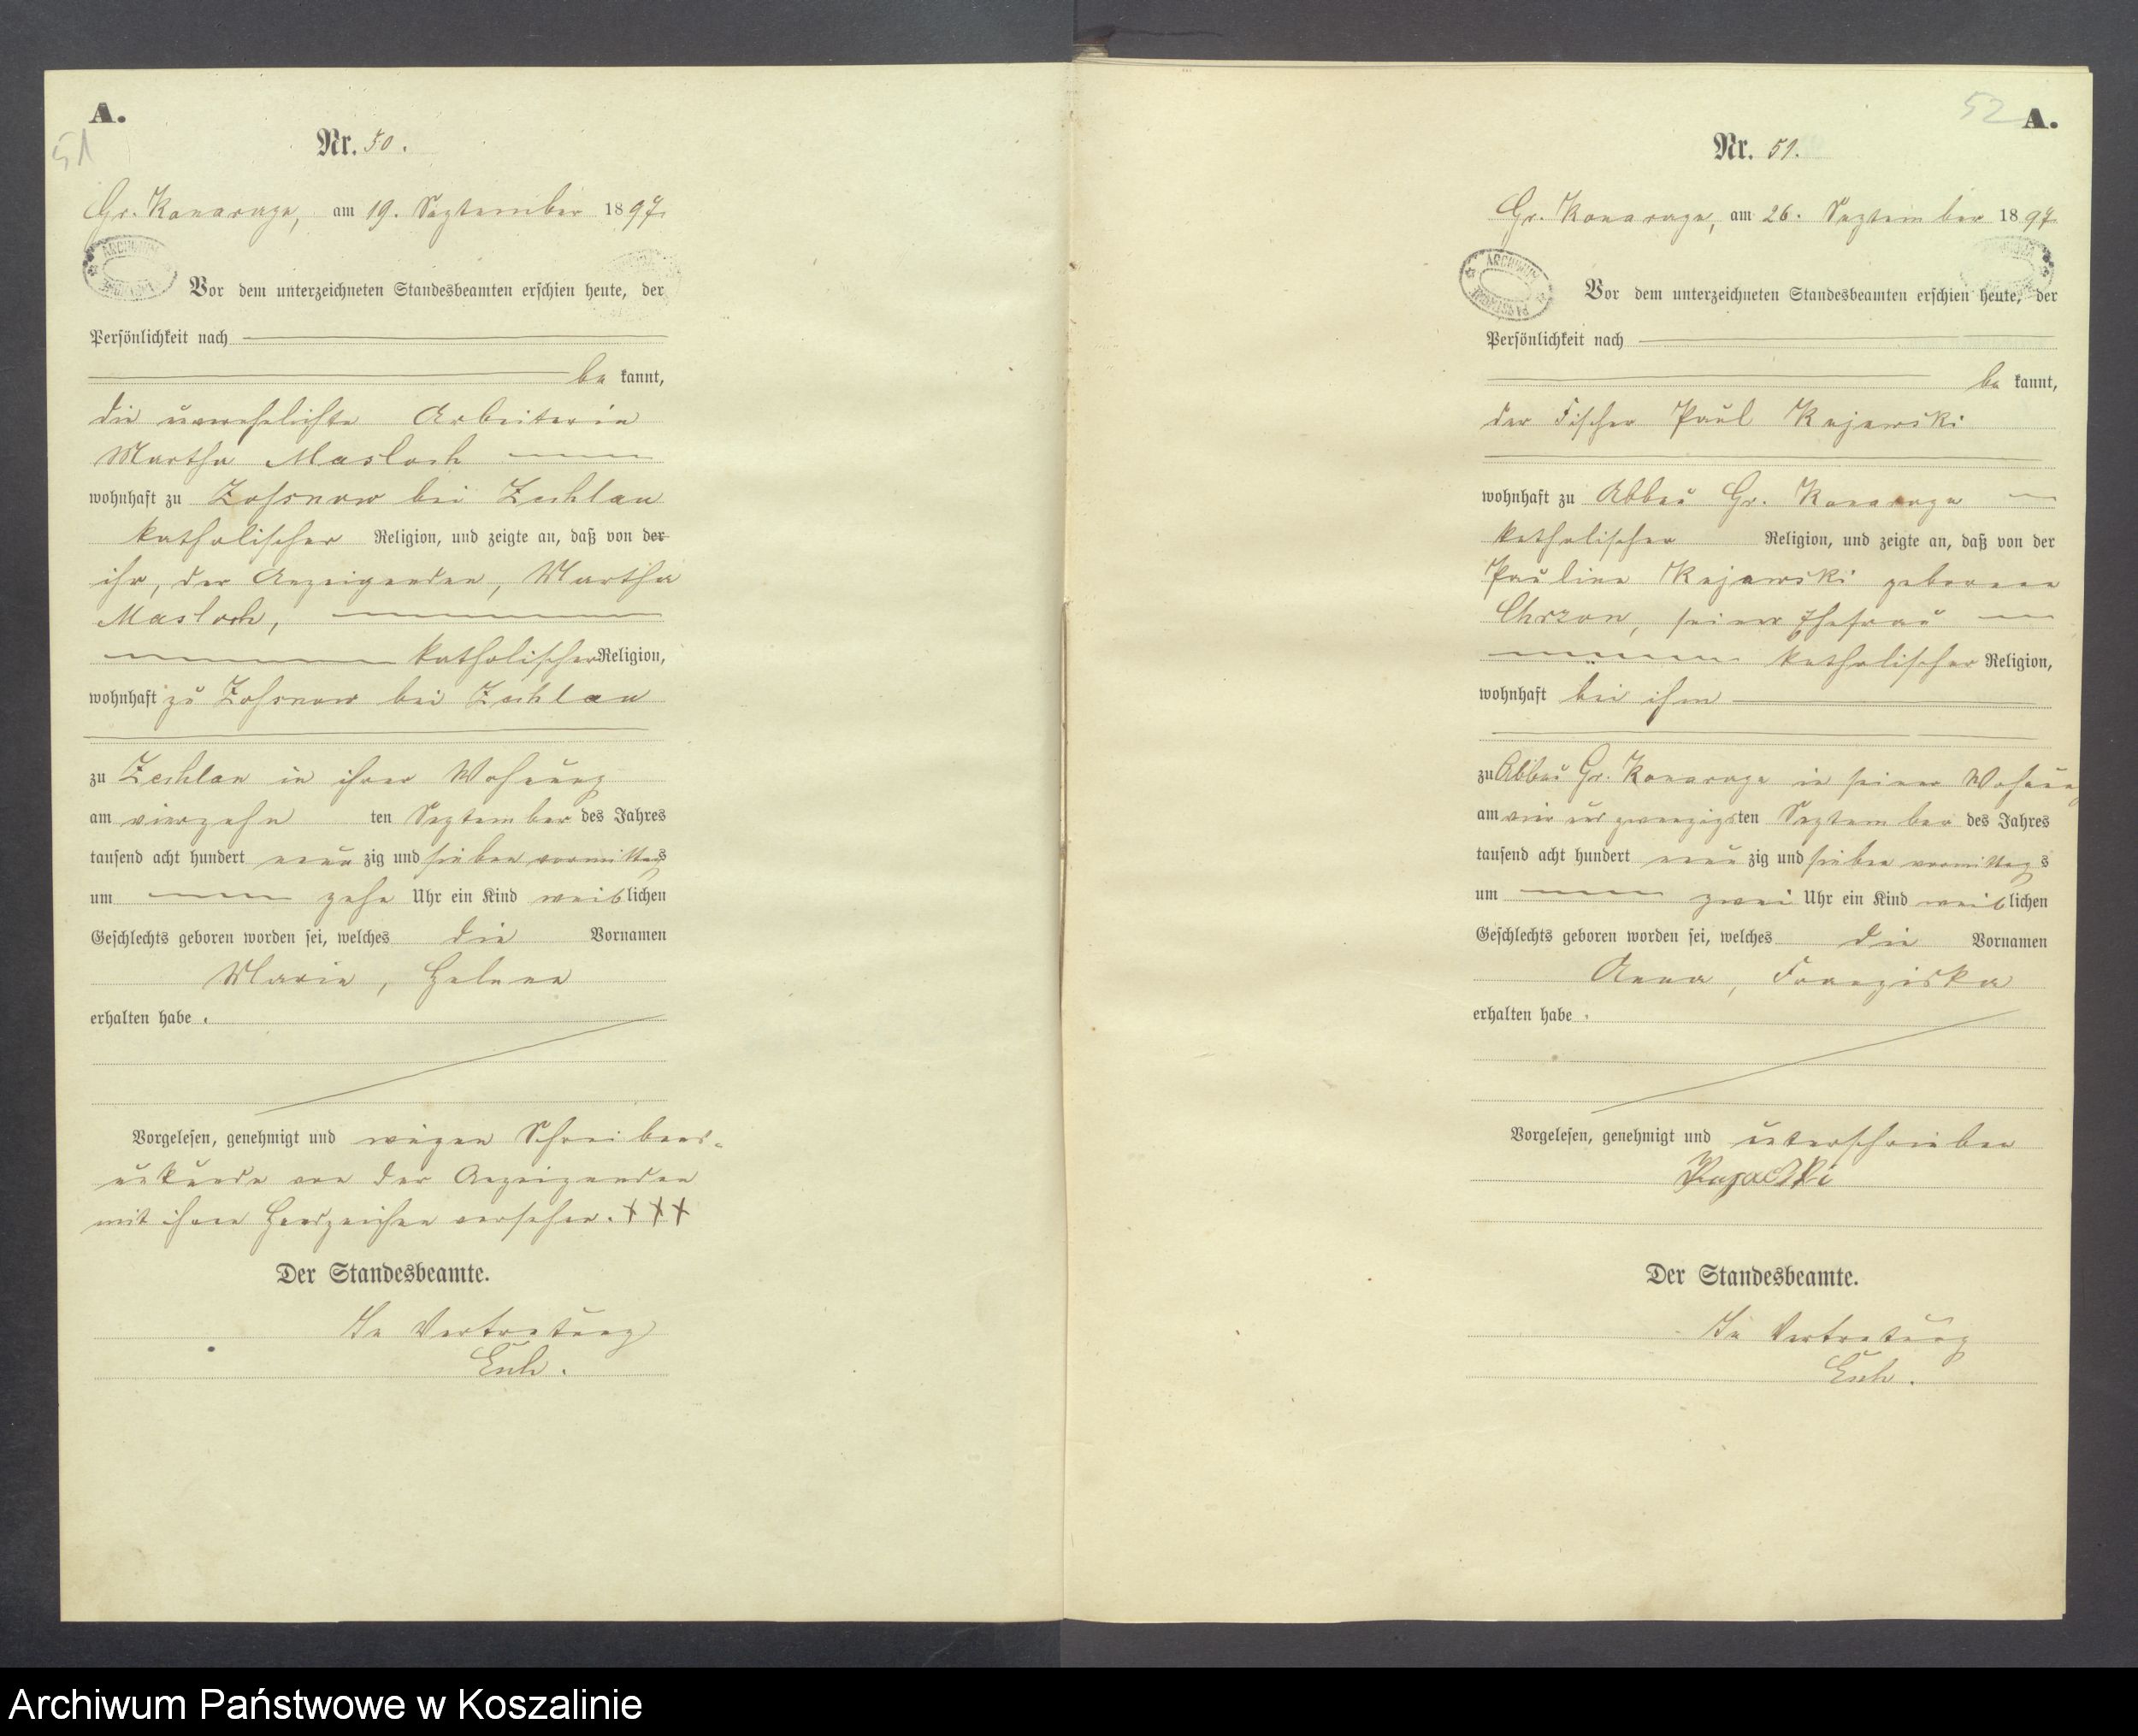 A.
51
Nr. 50.
Gr. Konarzyn, am 19. September 1897
ARCHIWUM
Vor dem unterzeichneten Standesbeamten erschien heute, der
Persönlichkeit nach
be kannt,
die unverehelichte Arbeiterin
Martha Masloch
wohnhaft zu bei Zechlau
katholischer Religion, und zeigte an, daß von der
ihr, der Anzeigenden, Martha
Masloch,
katholischer Religion,
wohnhaft zu bei Zechlau
zu Zechlau in ihrer Wohnung
am vierzehn ten September des Jahres
tausend acht hundert neun zig und sieben vormittags
um zehn Uhr ein Kind weiblichen
Geschlechts geboren worden sei, welches die Vornamen
Marie, Helene
erhalten habe.
Vorgelesen, genehmigt und wegen Schreibens-
unkunde von der Anzeigenden
mit ihren Handzeichen versehen. +++
Der Standesbeamte.
In Vertretung
52
A.
Nr. 51.
Gr. Konarzyn, am 26. September 1897
ARCHIWUM
Vor dem unterzeichneten Standesbeamten erschien heute, der
Persönlichkeit nach
be kannt,
der Fischer Paul Kujawski
wohnhaft zu Abbau Gr. Konarzyn
katholischer Religion, und zeigte an, daß von der
Pauline Kujawski geborene
Chrzon, seiner Ehefrau
katholischer Religion,
wohnhaft bei ihm
zu Abbau Gr. Konarzyn in seiner Wohnung
am vier und zwanzigsten September des Jahres
tausend acht hundert neun zig und sieben vormittags
um zwei Uhr ein Kind weiblichen
Geschlechts geboren worden sei, welches die Vornamen
Anna, Franziska
erhalten habe.
Vorgelesen, genehmigt und unterschrieben
Der Standesbeamte.
In Vertretung
Archiwum Państwowe w Koszalinie